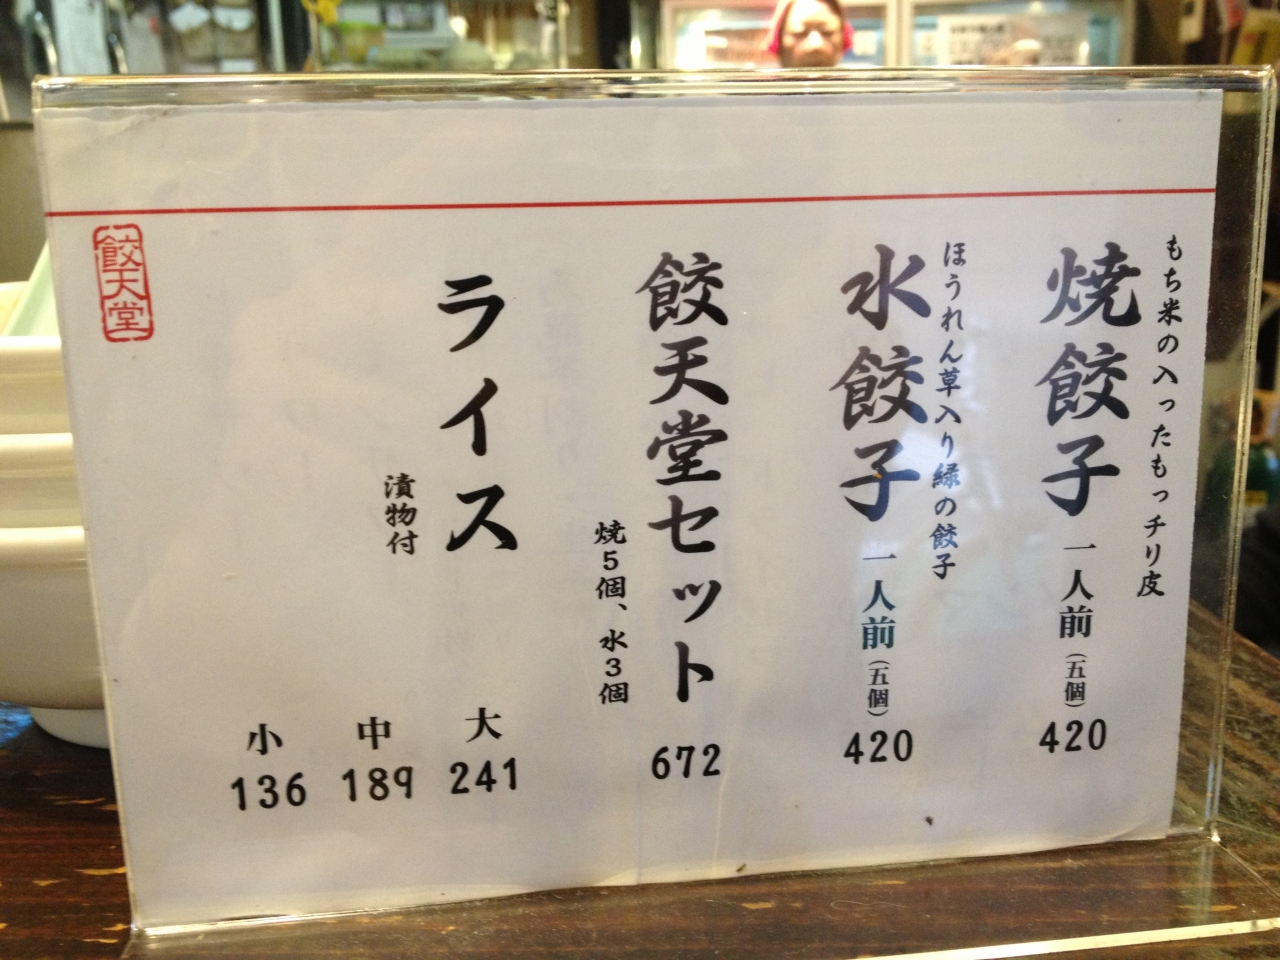 もち米の入ったもっチリ皮
焼餃子 一人前(五個) 420
ほうれん草入り緑の餃子
水餃子 一人前(五個) 420
餃天堂セット 672
焼5個、水3個
ライス
漬物付
大 241
中 189
小 136
餃天堂